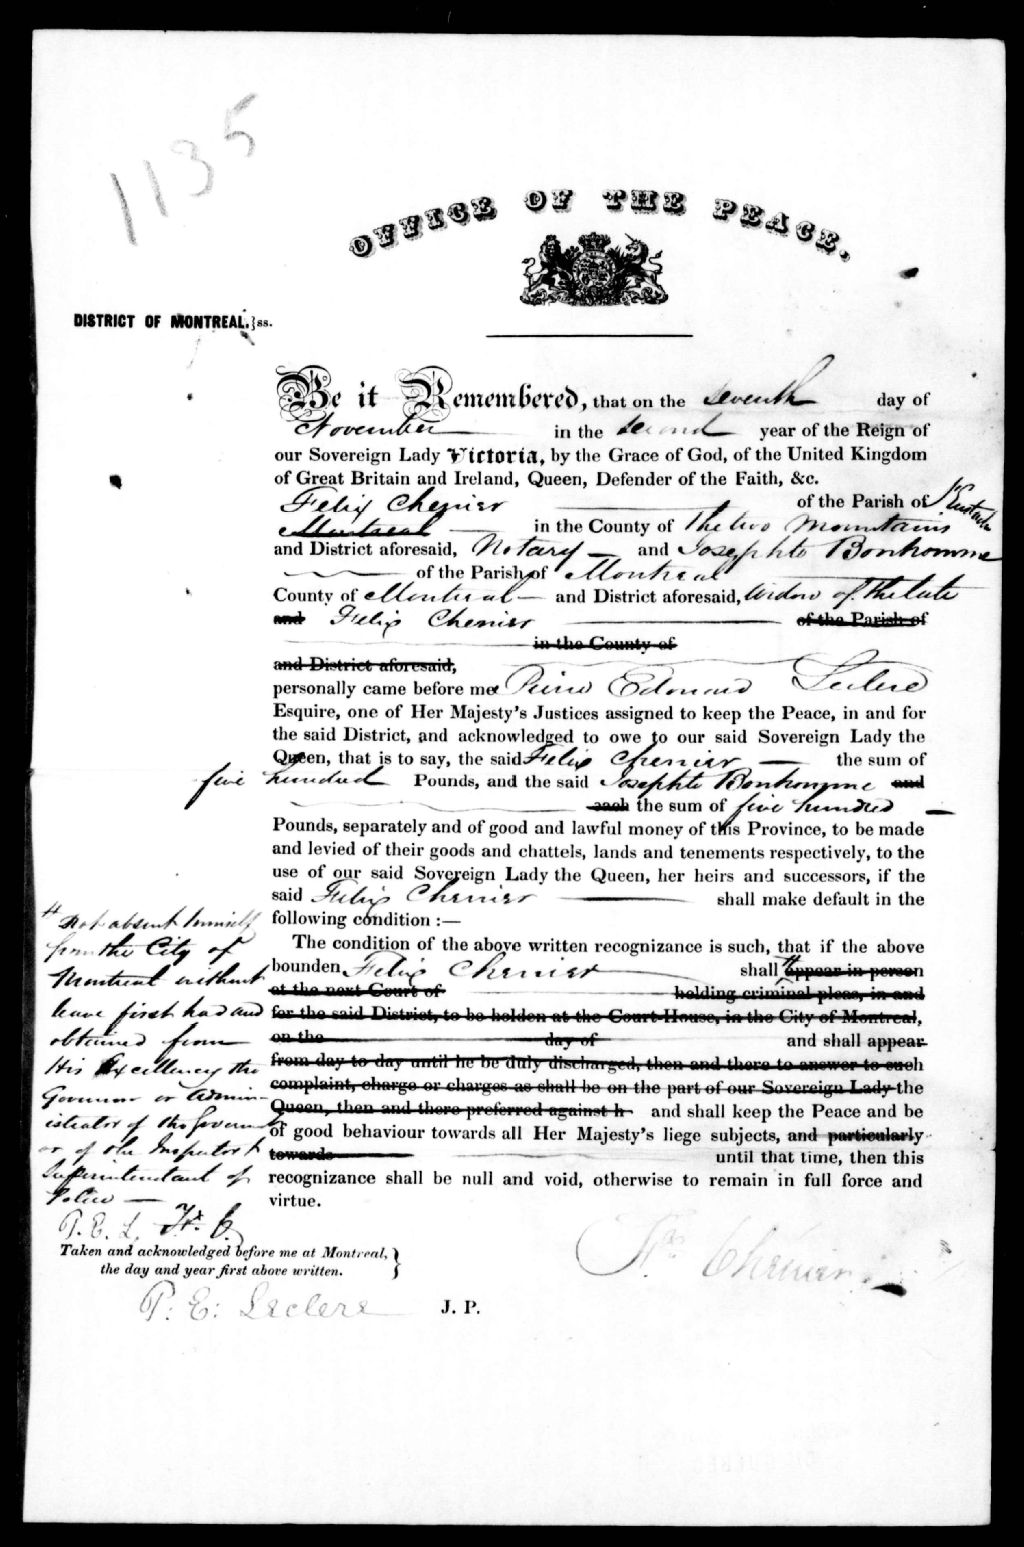 1135
OFFICE OF THE PEACE.
DISTRICT OF MONTREAL. }ss.
Be it Remembered, that on the seventh day of
November in the second year of the Reign of
our Sovereign Lady Victoria, by the Grace of God, of the United Kingdom
of Great Britain and Ireland, Queen, Defender of the Faith, &c.
Felix Chenier of the Parish of St Eustache
Montreal in the County of The two Mountains
and District aforesaid, Notary and Josephte Bonhomme
of the Parish of Montreal
County of Montreal and District aforesaid, Widow of the late
and Felix Chenier of the Parish of
in the County of
and District aforesaid,
personally came before me Pierre Edouard Leclere
Esquire, one of Her Majesty's Justices assigned to keep the Peace, in and for
the said District, and acknowledged to owe to our said Sovereign Lady the
Queen, that is to say, the said Felix Chenier the sum of
five hundred Pounds, and the said Josephte Bonhomme and
each the sum of five hundred
Pounds, separately and of good and lawful money of this Province, to be made
and levied of their goods and chattels, lands and tenements respectively, to the
use of our said Sovereign Lady the Queen, her heirs and successors, if the
said Felix Chenier shall make default in the
following condition :—
The condition of the above written recognizance is such, that if the above
bounden Felix Chenier shall # appear in person
at the next Court of holding criminal pleas, in and
for the said District, to be holden at the Court-House, in the City of Montreal,
on the day of and shall appear
from day to day until he be duly discharged, then and there to answer to such
complaint, charge or charges as shall be on the part of our Sovereign Lady the
Queen, then and there preferred against h and shall keep the Peace and be
of good behaviour towards all Her Majesty's liege subjects, and particularly
towards until that time, then this
recognizance shall be null and void, otherwise to remain in full force and
virtue.
# Not absent himself
from the City of
Montreal without
leave first had and
obtained from
His Excellency the
Governor or Admin-
istrator of the Government
or of the Inspector &
Superintendant of
Police
P. E. L. F. C.
Taken and acknowledged before me at Montreal, }
the day and year first above written.
P. E: Leclere J. P.
Fx Chénier